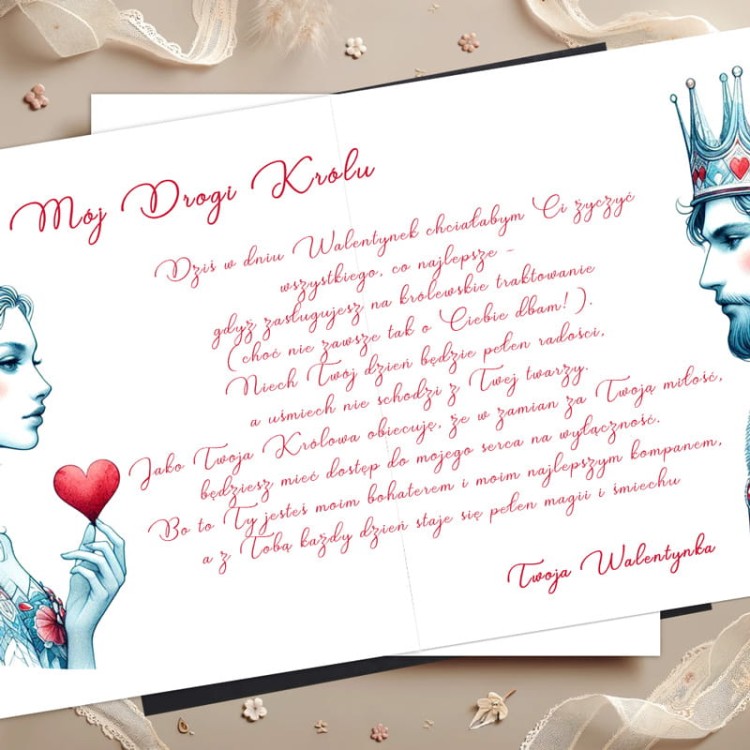 Mój Drogi Królu
Dziś w dniu Walentynek chciałabym Ci życzyć
wszystkiego, co najlepsze -
gdyż zasługujesz na królewskie traktowanie
(choć nie zawsze tak o Ciebie dbam!).
Niech Twój dzień będzie pełen radości,
a uśmiech nie schodzi z Twej twarzy.
Jako Twoja Królowa obiecuję, że w zamian za Twoją miłość,
będziesz mieć dostęp do mojego serca na wyłączność.
Bo to Ty jesteś moim bohaterem i moim najlepszym kompanem,
a z Tobą każdy dzień staje się pełen magii i śmiechu
Twoja Walentynka